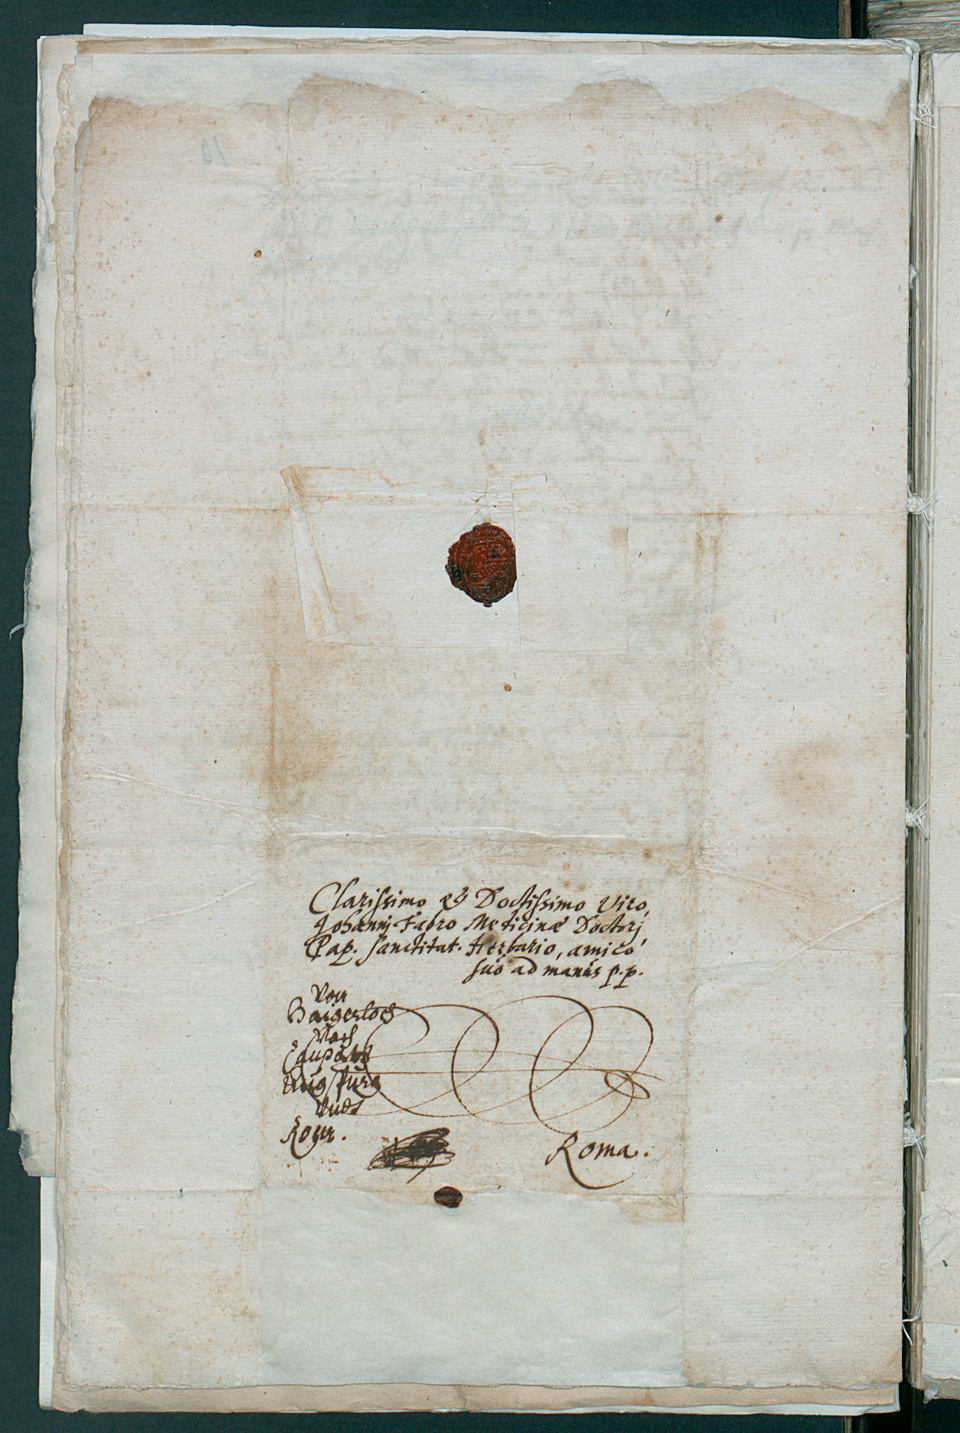 Clarissimo et Doctissimo Viro,
Iohanni Fabro Medicinæ Doctori
Pap. Sanctitat. Herbario, amico
suo ad manus p.p.
Von
Baigerloch
Nach
Augspurg
Vnd
Rom.
Roma.